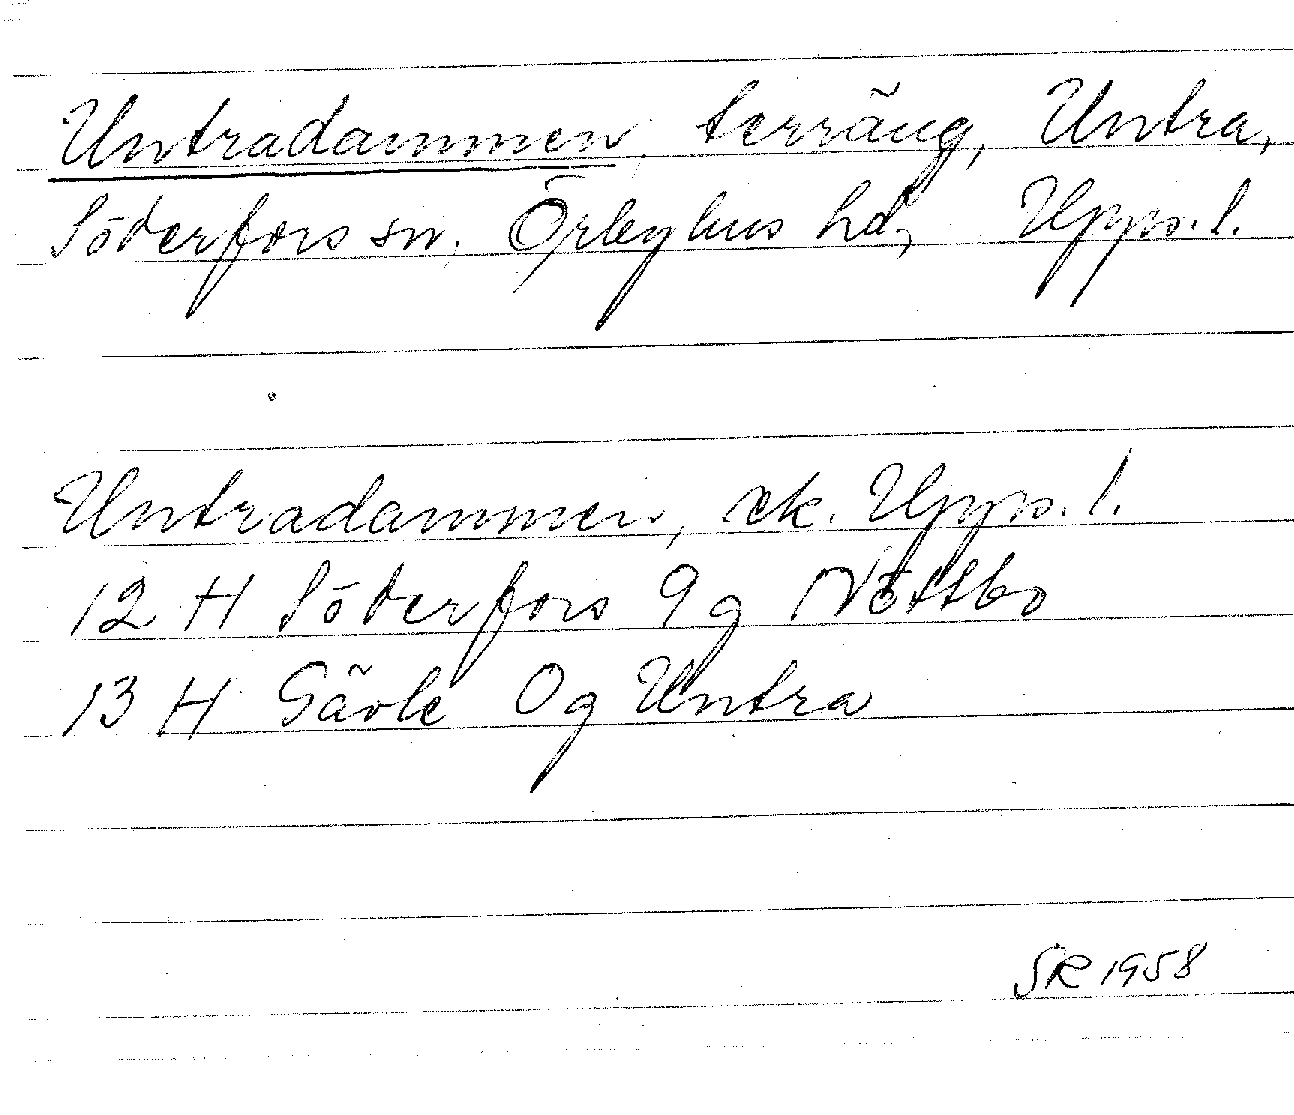 Untradammen, terräng, Untra,
Söderfors sn, Örbyhus hd, Upps. l.
Untradammen, ek. Upps. l.
12 H Söderfors 9g Nöttbo
13 H Gävle 0g Untra
SR 1958